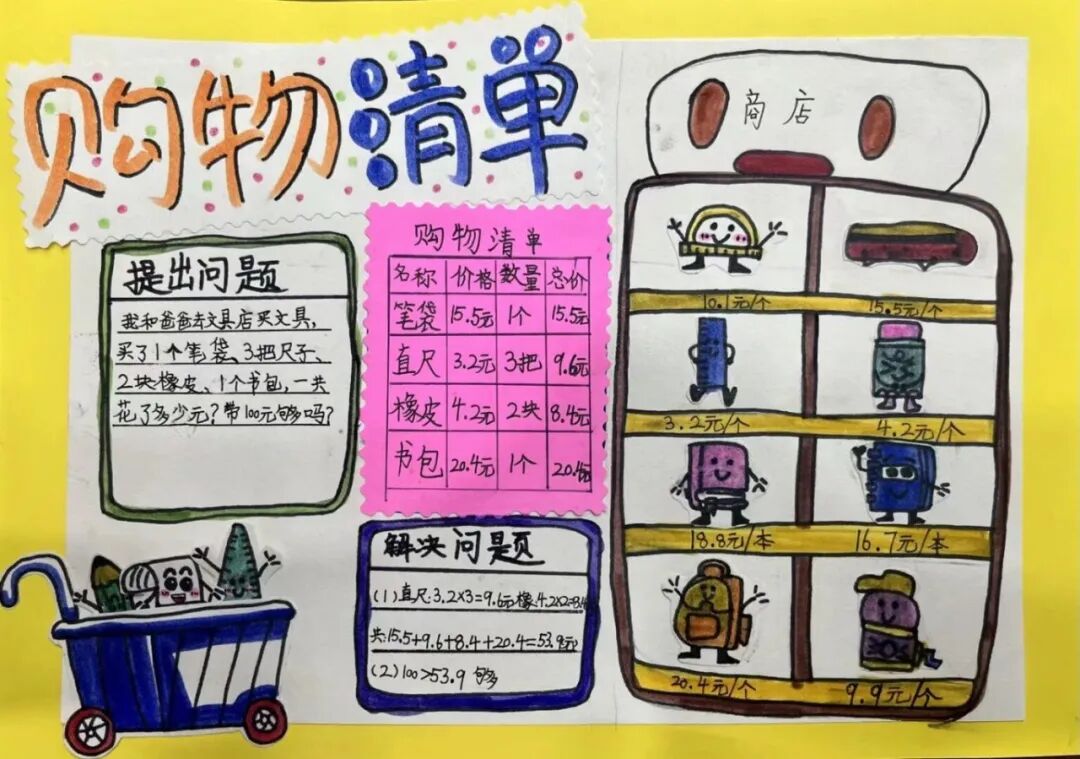 购物清单
提出问题
我和爸爸去文具店买文具，
买了1个笔袋、3把尺子、
2块橡皮、1个书包，一共
花了多少元？带100元够吗？
购物清单
名称 价格 数量 总价
笔袋 15.5元 1个 15.5元
直尺 3.2元 3把 9.6元
橡皮 4.2元 2块 8.4元
书包 20.4元 1个 20.4元
解决问题
(1)直尺:3.2×3=9.6元 橡:4.2×2=8.4
共:15.5+9.6+8.4+20.4=53.9(元)
(2)100>53.9 够
商店
10.1元/个 15.5元/个
3.2元/个 4.2元/个
18.8元/本 16.7元/本
20.4元/个 9.9元/个